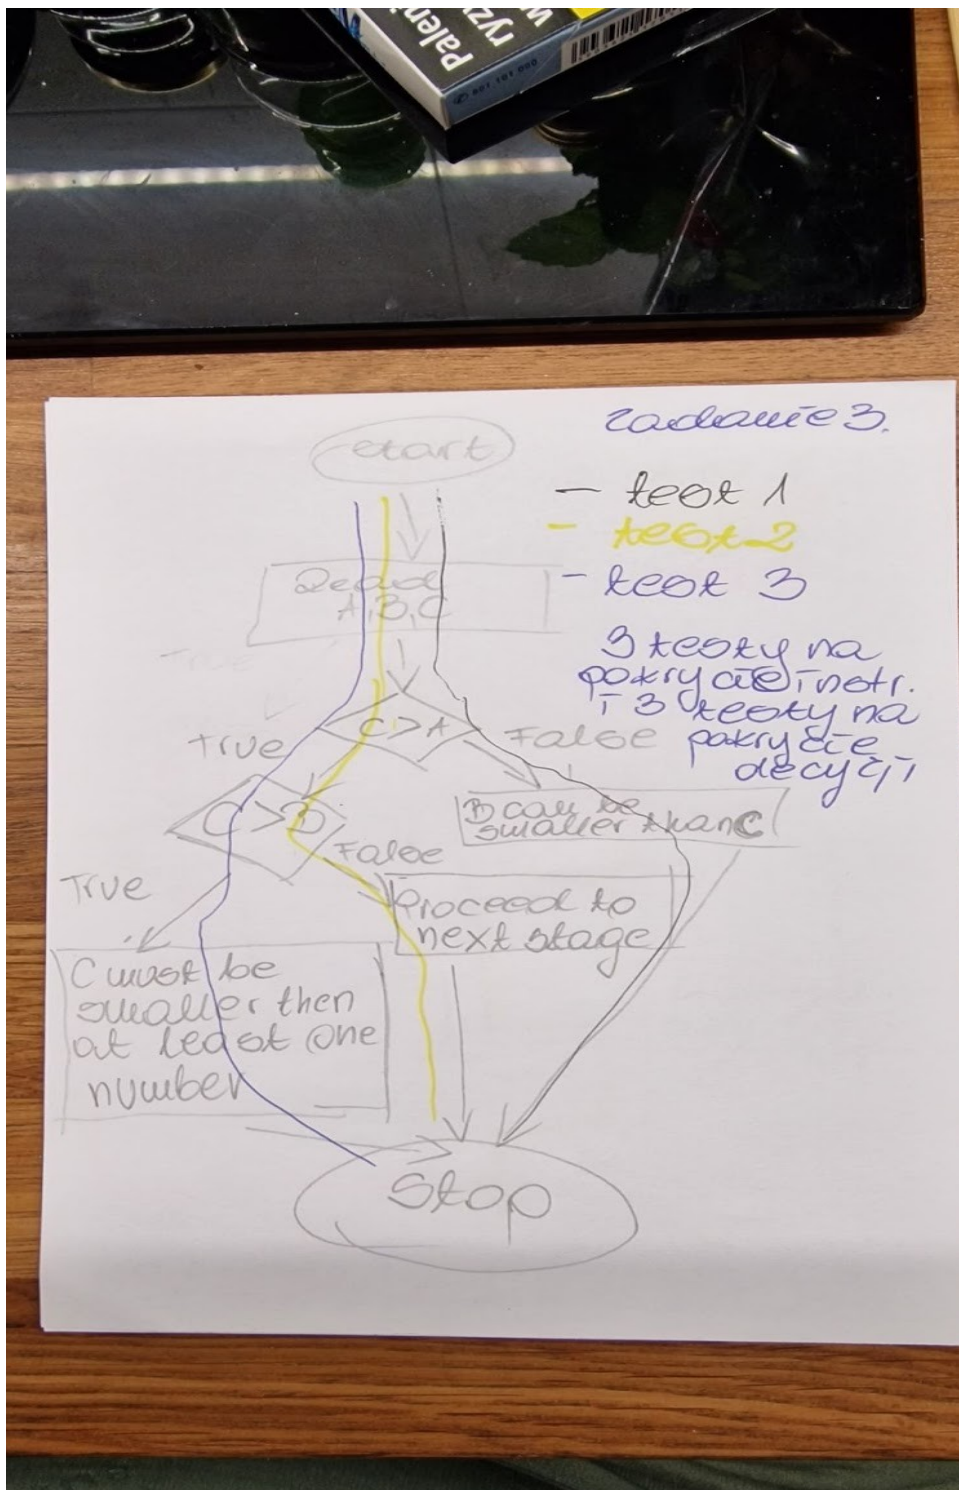 Paleni
ryz
w
801 101 000
zadanie 3.
start
- test 1
- test 2
- test 3
Read
A,B,C
3 testy na
pokrycie instr.
i 3 testy na
pokrycie
decyzji
True
C>A
True
False
C>B
B can be
smaller than C
False
True
Proceed to
next stage
C must be
smaller then
at least one
number
Stop